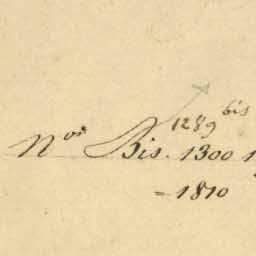 1289 bis
Nos Bis. 1300 1
= 1810